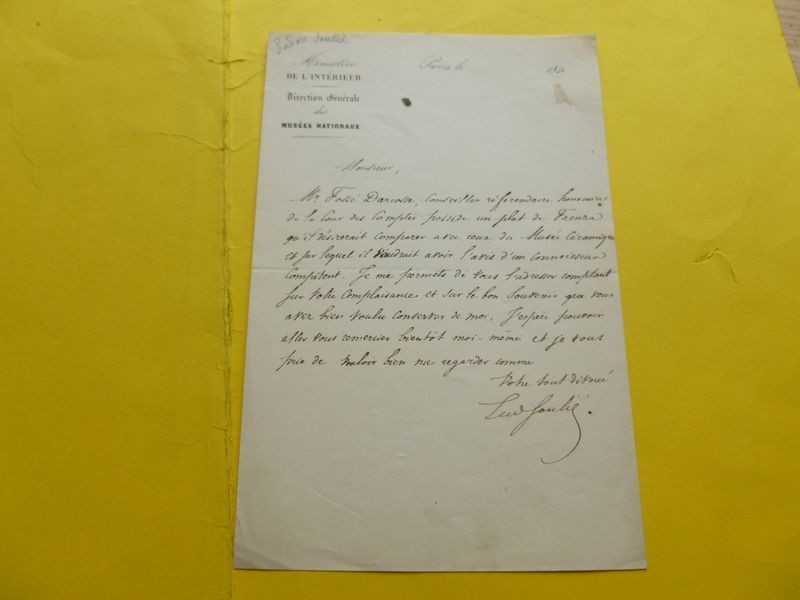 Eudore Soulié
Ministère
DE L'INTÉRIEUR.
Direction Générale
des
MUSÉES NATIONAUX.
Paris, le 185
Monsieur,
Mr. Fossé Darcosse, conseiller référendaire honoraire
de la Cour des Comptes possède un plat de Faenza
qu'il désirerait comparer avec ceux du Musée Céramique
et sur lequel il voudrait avoir l'avis d'un connaisseur
compétent. Je me permets de vous l'adresser comptant
sur votre complaisance et sur le bon souvenir que vous
avez bien voulu conserver de moi. J'espère pouvoir
aller vous remercier bientôt moi-même et je vous
prie de vouloir bien me regarder comme
Votre tout dévoué
Eud Soulié.